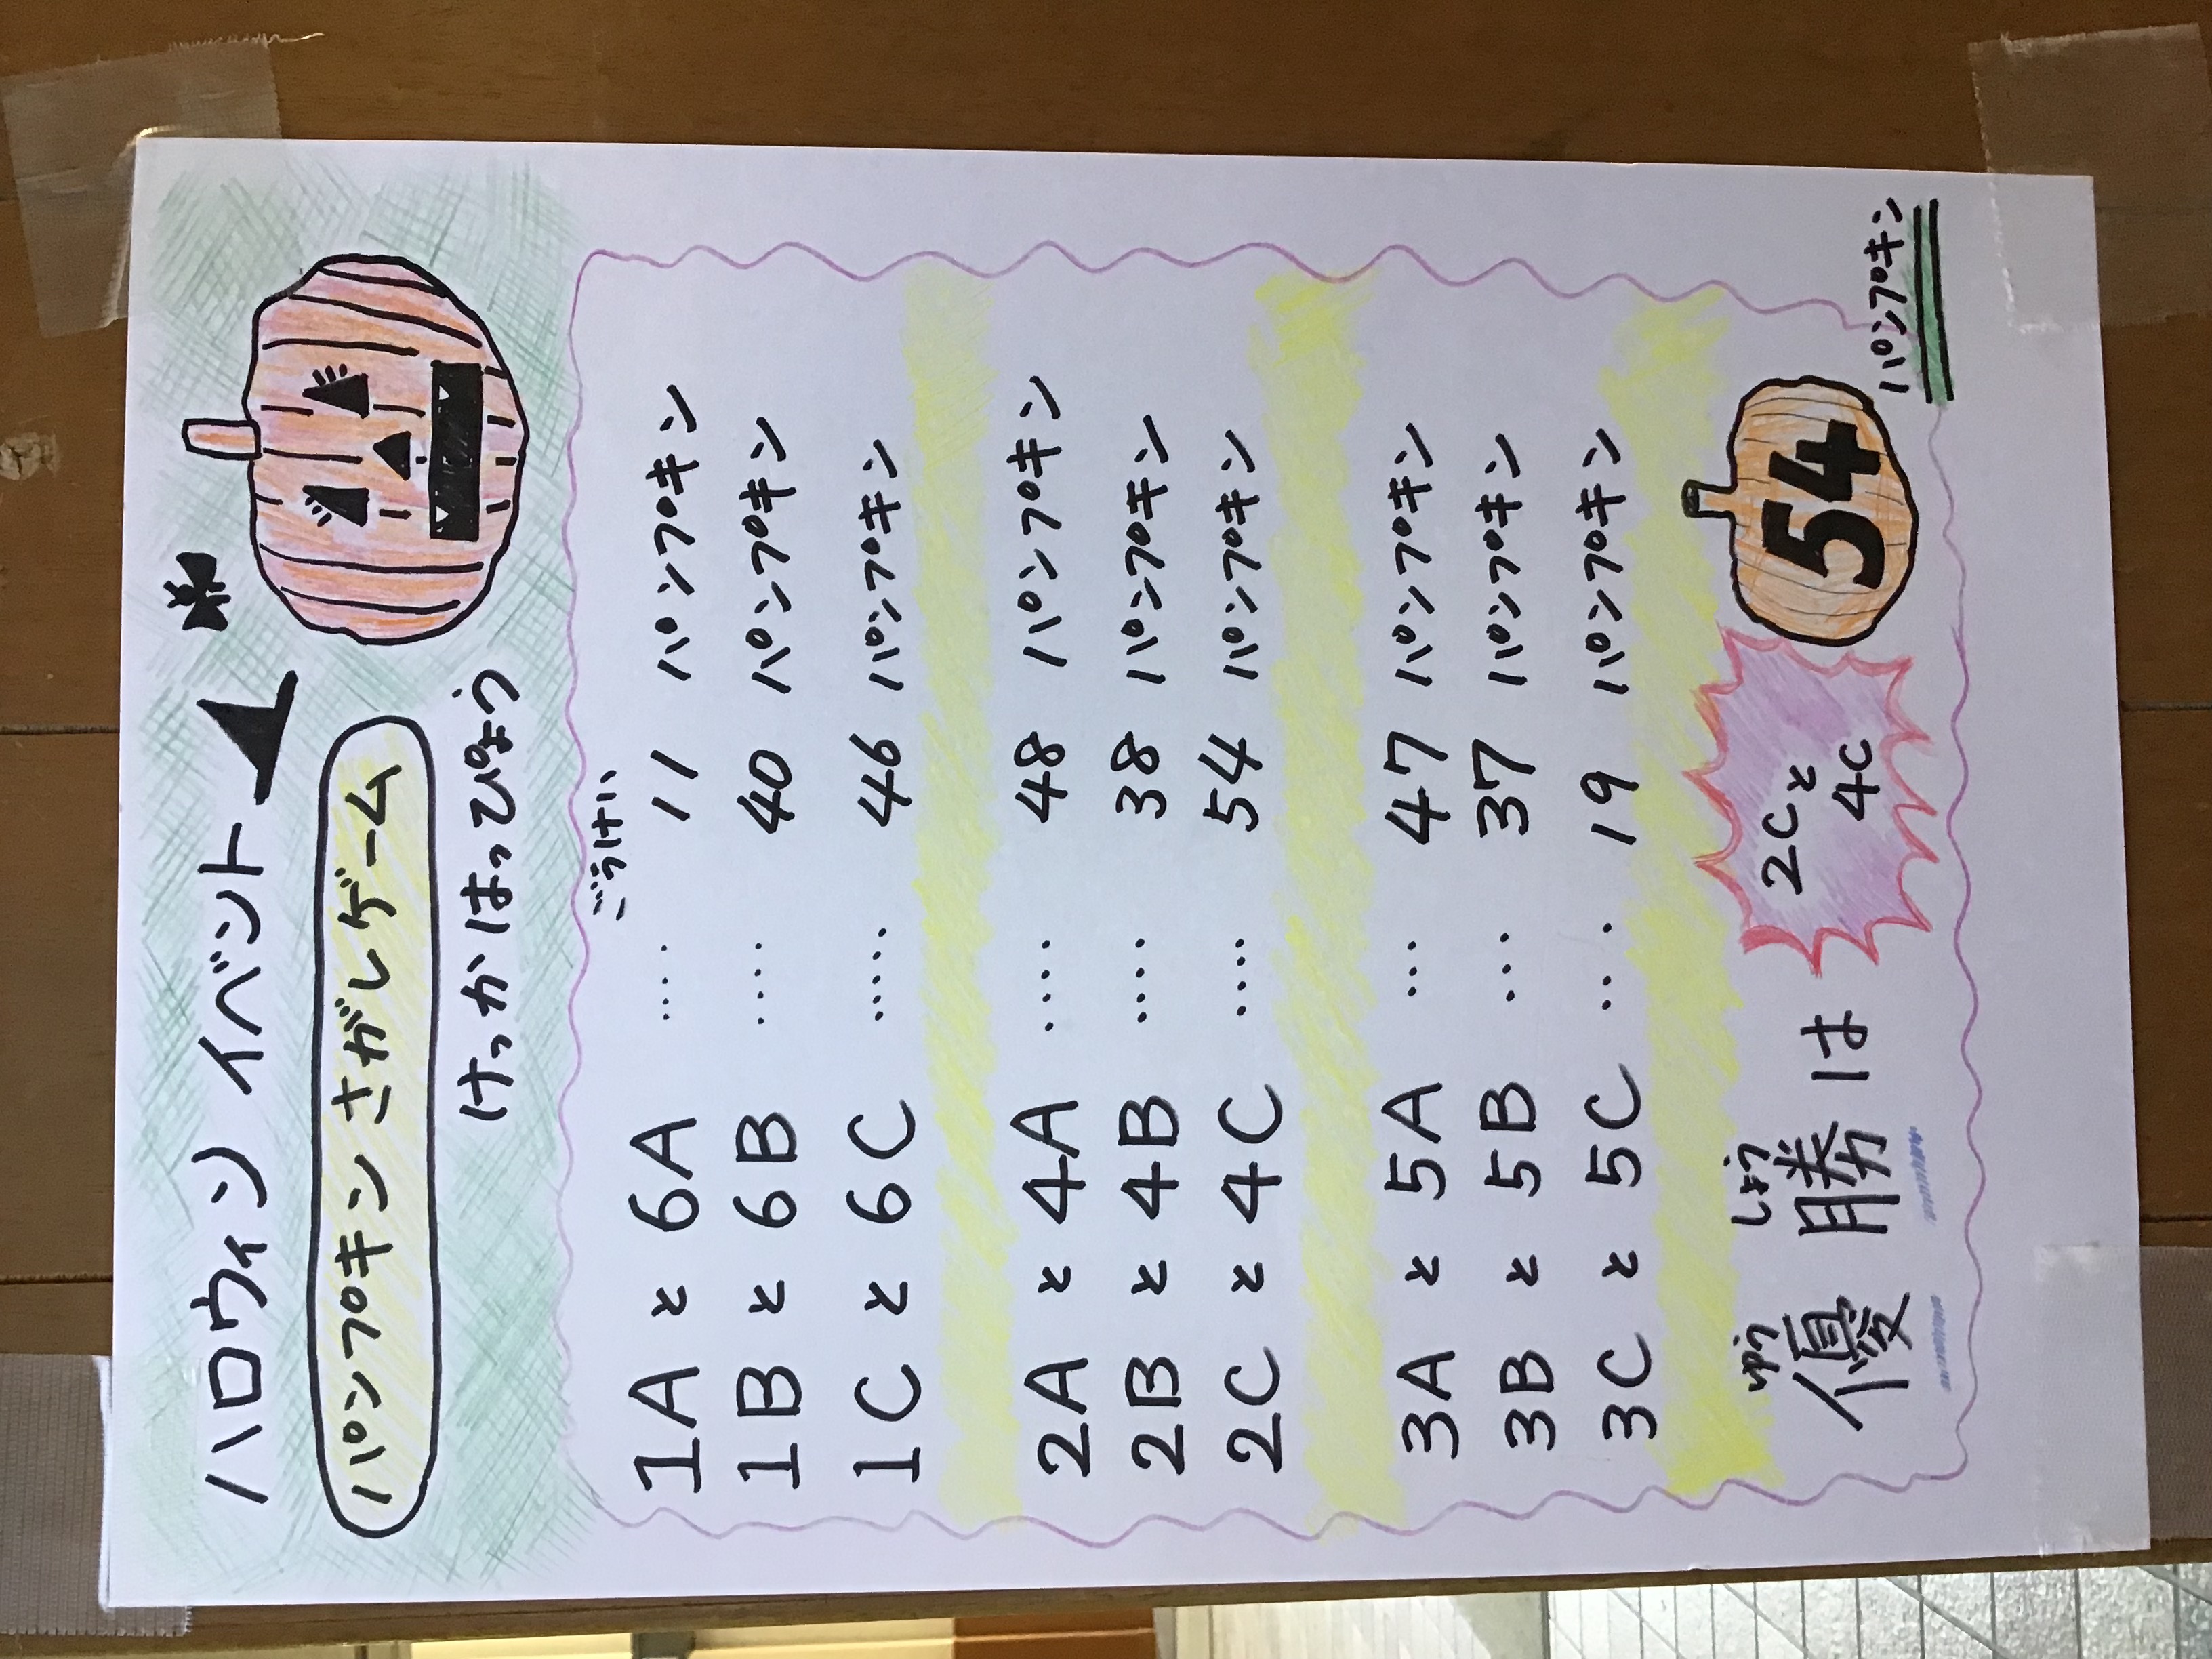 ハロウィン イベント
パンプキン さがしゲーム
けっか はっぴょう
ごうけい
1A と 6A ···· 11 パンプキン
1B と 6B ···· 40 パンプキン
1C と 6C ····· 46 パンプキン
2A と 4A ···· 48 パンプキン
2B と 4B ···· 38 パンプキン
2C と 4C ···· 54 パンプキン
3A と 5A ··· 47 パンプキン
3B と 5B ··· 37 パンプキン
3C と 5C ··· 19 パンプキン
ゆう しょう
優 勝 は 2Cと 4C 54 パンプキン